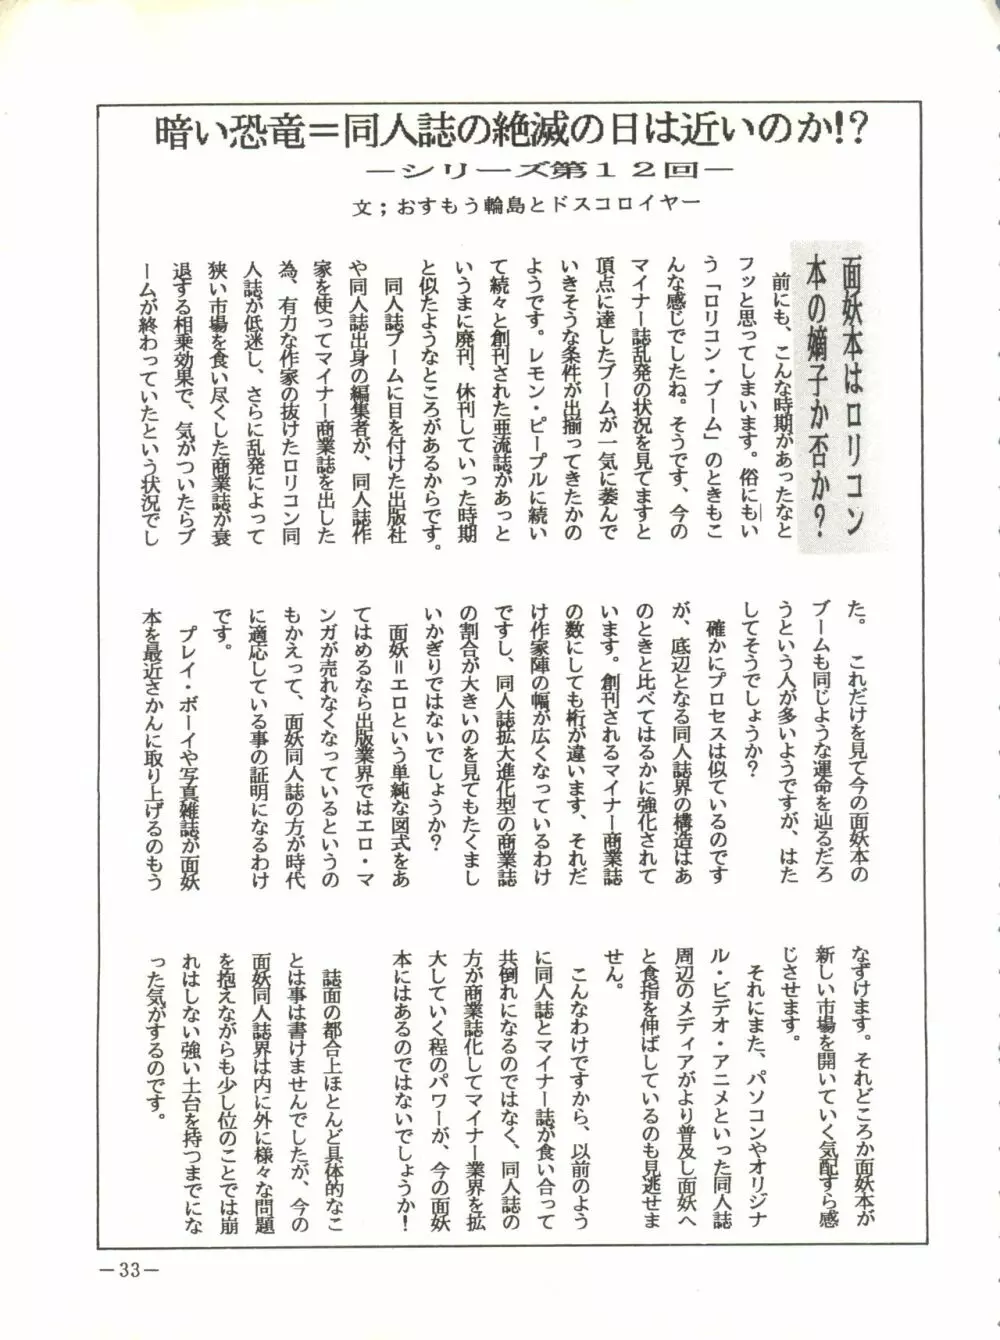 暗い恐竜＝同人誌の絶滅の日は近いのか!?
—シリーズ第１２回—
文；おすもう輪島とドスコロイヤー
面妖本はロリコン
本の嫡子か否か？
前にも、こんな時期があったなと
フッと思ってしまいます。俗にもい
う「ロリコン・ブーム」のときもこ
んな感じでしたね。そうです、今の
マイナー誌乱発の状況を見てますと
頂点に達したブームが一気に萎んで
いきそうな条件が出揃ってきたかの
ようです。レモン・ピープルに続い
て続々と創刊された亜流誌があっと
いうまに廃刊、休刊していった時期
と似たようなところがあるからです。
同人誌ブームに目を付けた出版社
や同人誌出身の編集者が、同人誌作
家を使ってマイナー商業誌を出した
為、有力な作家の抜けたロリコン同
人誌が低迷し、さらに乱発によって
狭い市場を食い尽くした商業誌が衰
退する相乗効果で、気がついたらブ
ームが終わっていたという状況でし
た。　これだけを見て今の面妖本の
ブームも同じような運命を辿るだろ
うという人が多いようですが、はた
してそうでしょうか？
確かにプロセスは似ているのです
が、底辺となる同人誌界の構造はあ
のときと比べてはるかに強化されて
います。創刊されるマイナー商業誌
の数にしても桁が違います、それだ
け作家陣の幅が広くなっているわけ
ですし、同人誌拡大進化型の商業誌
の割合が大きいのを見てもたくまし
いかぎりではないでしょうか？
面妖＝エロという単純な図式をあ
てはめるなら出版業界ではエロ・マ
ンガが売れなくなっているというの
もかえって、面妖同人誌の方が時代
に適応している事の証明になるわけ
です。
プレイ・ボーイや写真雑誌が面妖
本を最近さかんに取り上げるのもう
なずけます。それどころか面妖本が
新しい市場を開いていく気配すら感
じさせます。
それにまた、パソコンやオリジナ
ル・ビデオ・アニメといった同人誌
周辺のメディアがより普及し面妖へ
と食指を伸ばしているのも見逃せま
せん。
こんなわけですから、以前のよう
に同人誌とマイナー誌が食い合って
共倒れになるのではなく、同人誌の
方が商業誌化してマイナー業界を拡
大していく程のパワーが、今の面妖
本にはあるのではないでしょうか！
誌面の都合上ほとんど具体的なこ
とは事は書けませんでしたが、今の
面妖同人誌界は内に外に様々な問題
を抱えながらも少し位のことでは崩
れはしない強い土台を持つまでにな
った気がするのです。
—33—